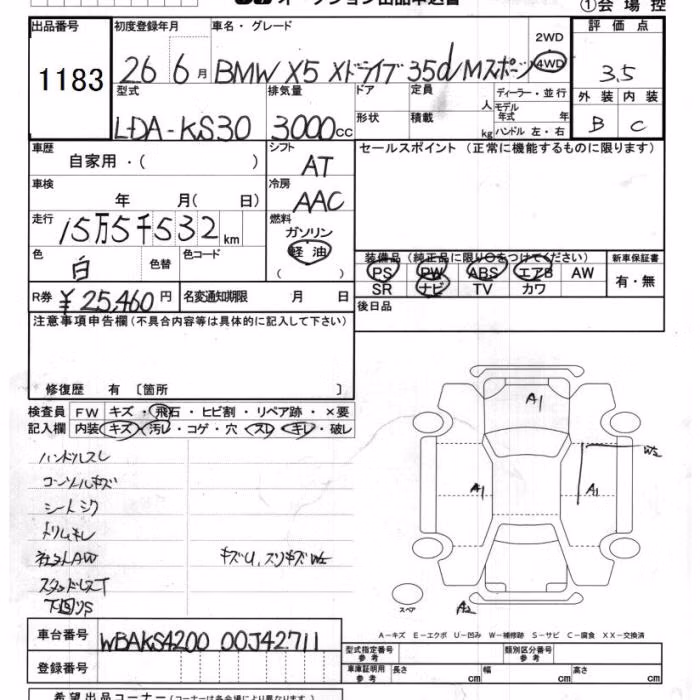 オークション出品申込書
①会場控
出品番号
1183
初度登録年月
26 6月
車名・グレード
BMW X5 Xドライブ35d Mスポーツ
2WD
4WD
評価点
3.5
外装 内装
B C
型式
LDA-KS30
排気量
3000cc
ドア
形状
定員
人
積載
kg
ディーラー・並行
モデル年式 年
ハンドル 左・右
車歴
自家用・( )
シフト
AT
セールスポイント (正常に機能するものに限ります)
車検
年 月( 日)
冷房
AAC
走行
15万5千532km
燃料
ガソリン
軽油
( )
色
白
色替
色コード
装備品 (純正品に限り○をつけてください)
新車保証書
PS PW ABS エアB AW
SR ナビ TV カワ
有・無
R券
¥25,460円
名変通知期限 月 日
後日品
注意事項申告欄(不具合内容等は具体的に記入して下さい)
修復歴 有 〔箇所 〕
検査員
記入欄
FW キズ・飛石・ヒビ割・リペア跡・×要
内装 キズ・汚レ・コゲ・穴・スレ・キレ・破レ
ハンドルスレ
コンソールキズ
シートシワ
社外AW
キズU,スリキズW2
スタッドレスT
下回りS
A1
A1
A1
W2
スペア
A2
A-キズ E-エクボ U-凹み W-補修跡 S-サビ C-腐食 XX-交換済
車台番号
WBAKS4200 00J42711
登録番号
型式指定番号
参考
類別区分番号
参考
車庫証明用
参考
長さ cm
幅 cm
高さ cm
希望出品コーナー(コーナーは各会場により異なります。)